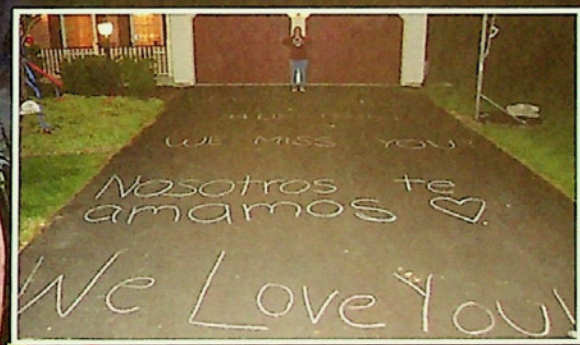 WE MISS YOU
Nosotros te
amamos
We Love You!